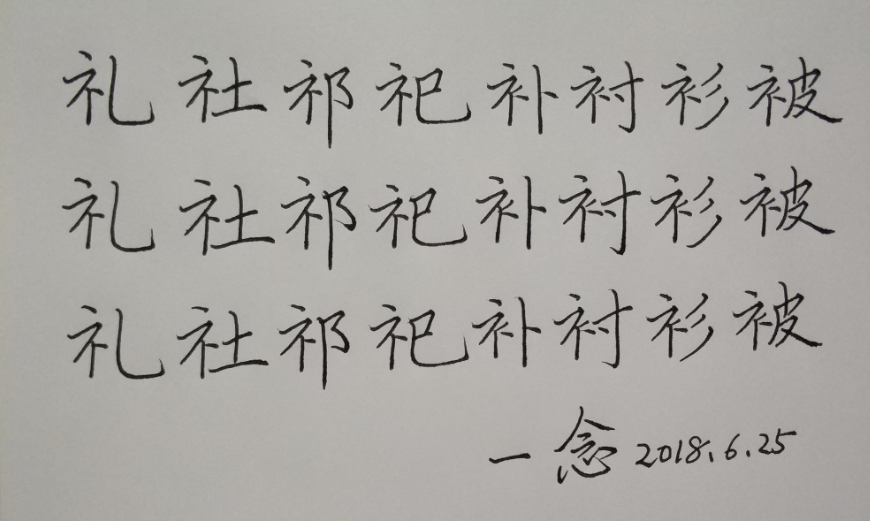 礼社祁祀补衬衫被
礼社祁祀补衬衫被
礼社祁祀补衬衫被
一念 2018.6.25